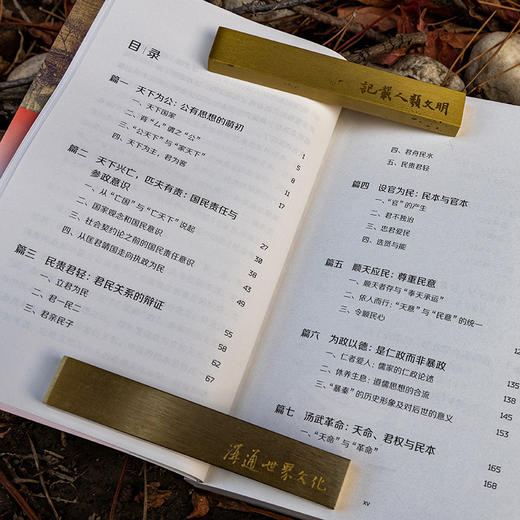 目录
篇一 天下为公：公有思想的萌初
一、天下国家 1
二、背“厶”谓之“公” 5
三、“公天下”与“家天下” 11
四、天下为主，君为客 17
篇二 天下兴亡，匹夫有责：国民责任与
参政意识
一、从“亡国”与“亡天下”说起 27
二、国家观念和国民意识
三、社会契约论之前的国民责任意识 38
四、从匡君靖国走向执政为民 43
49
篇三 民贵君轻：君民关系的辩证
一、立君为民 55
二、君一民二 58
三、君亲民子 67
記載人類文明
四、君舟民水
五、民贵君轻
篇四 设官为民：民本与官本
一、“官”的产生
二、君不独治
三、忠君爱民
四、选贤与能
篇五 顺天应民：尊重民意
一、顺天者存与“奉天承运”
二、依人而行：“天意”与“民意”的统一
三、令顺民心
篇六 为政以德：是仁政而非暴政
一、仁者爱人：儒家的仁政论述
二、休养生息：道儒思想的合流
三、“暴秦”的历史形象及对后世的意义 155
篇七 汤武革命：天命、君权与民本 165
一、“天命”与“革命” 168
xv
漢通世界文化